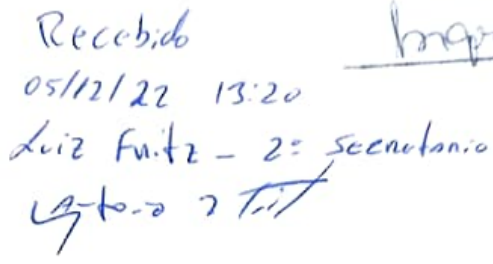 Recebido
05/12/22 13:20
Luiz Fritz - 2º Secretario